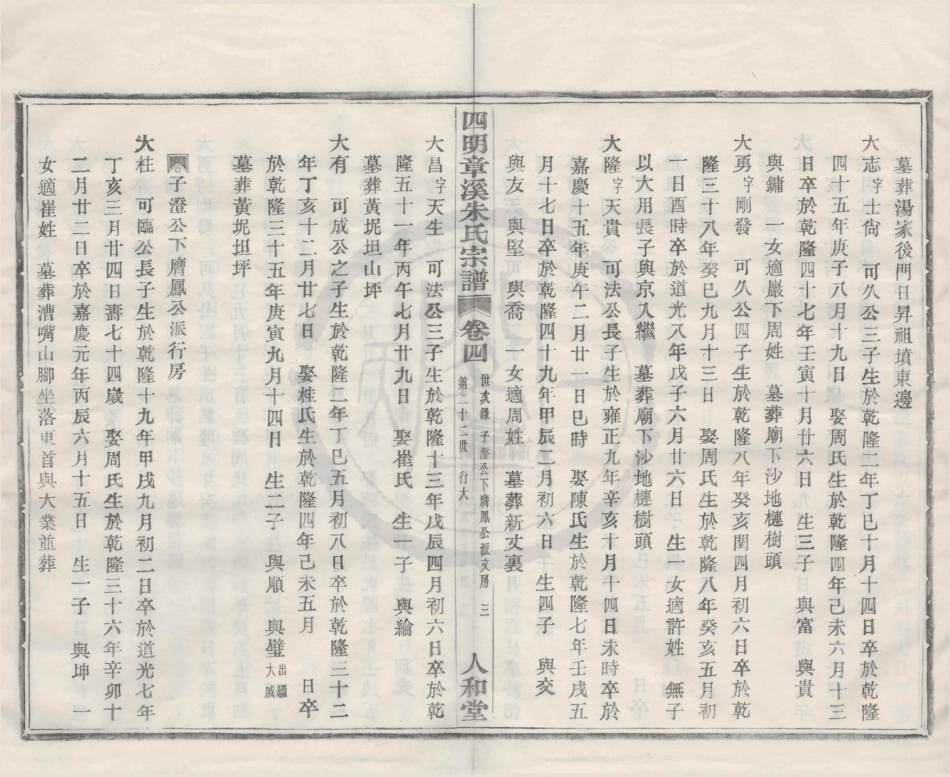 墓葬湯家後門日昇祖墳東邊
大志字士尙 可久公三子生於乾隆二年丁巳十月十四日卒於乾隆
四十五年庚子八月十九日 娶周氏生於乾隆四年己未六月十三
日卒於乾隆四十七年壬寅十月廿六日 生三子 與富 與貴
與鏞 一女適嚴下周姓 墓葬廟下沙地槤樹頭
大勇字剛發 可久公四子生於乾隆八年癸亥閏四月初六日卒於乾
隆三十八年癸巳九月十三日 娶周氏生於乾隆八年癸亥五月初
一日酉時卒於道光八年戊子六月廿六日 生一女適許姓 無子
以大用長子與京入繼 墓葬廟下沙地槤樹頭
大隆字天貴 可法公長子生於雍正九年辛亥十月十四日未時卒於
嘉慶十五年庚午二月廿一日巳時 娶陳氏生於乾隆七年壬戌五
月十七日卒於乾隆四十九年甲辰三月初六日 生四子 與炎
與友 與堅 與喬 一女適周姓 墓葬新丈裏
四明章溪朱氏宗譜 卷四 世次錄 子澄公下膺鳳公派文房 三
第二十二世 行大
人和堂
大昌字天生 可法公三子生於乾隆十三年戊辰四月初六日卒於乾
隆五十一年丙午七月廿九日 娶崔氏 生一子 與綸
墓葬黃坭坦山坪
大有 可成公之子生於乾隆二年丁巳五月初八日卒於乾隆三十二
年丁亥十二月廿七日 娶桂氏生於乾隆四年己未五月 日卒
於乾隆三十五年庚寅九月十四日 生二子 與順 與璧出繼大威
墓葬黃坭坦坪
子澄公下膺鳳公派行房
大柱 可臨公長子生於乾隆十九年甲戌九月初二日卒於道光七年
丁亥三月廿四日壽七十四歲 娶周氏生於乾隆三十六年辛卯十
二月廿二日卒於嘉慶元年丙辰六月十五日 生一子 與坤 一
女適崔姓 墓葬漕嘴山腳坐落東首與大業並葬